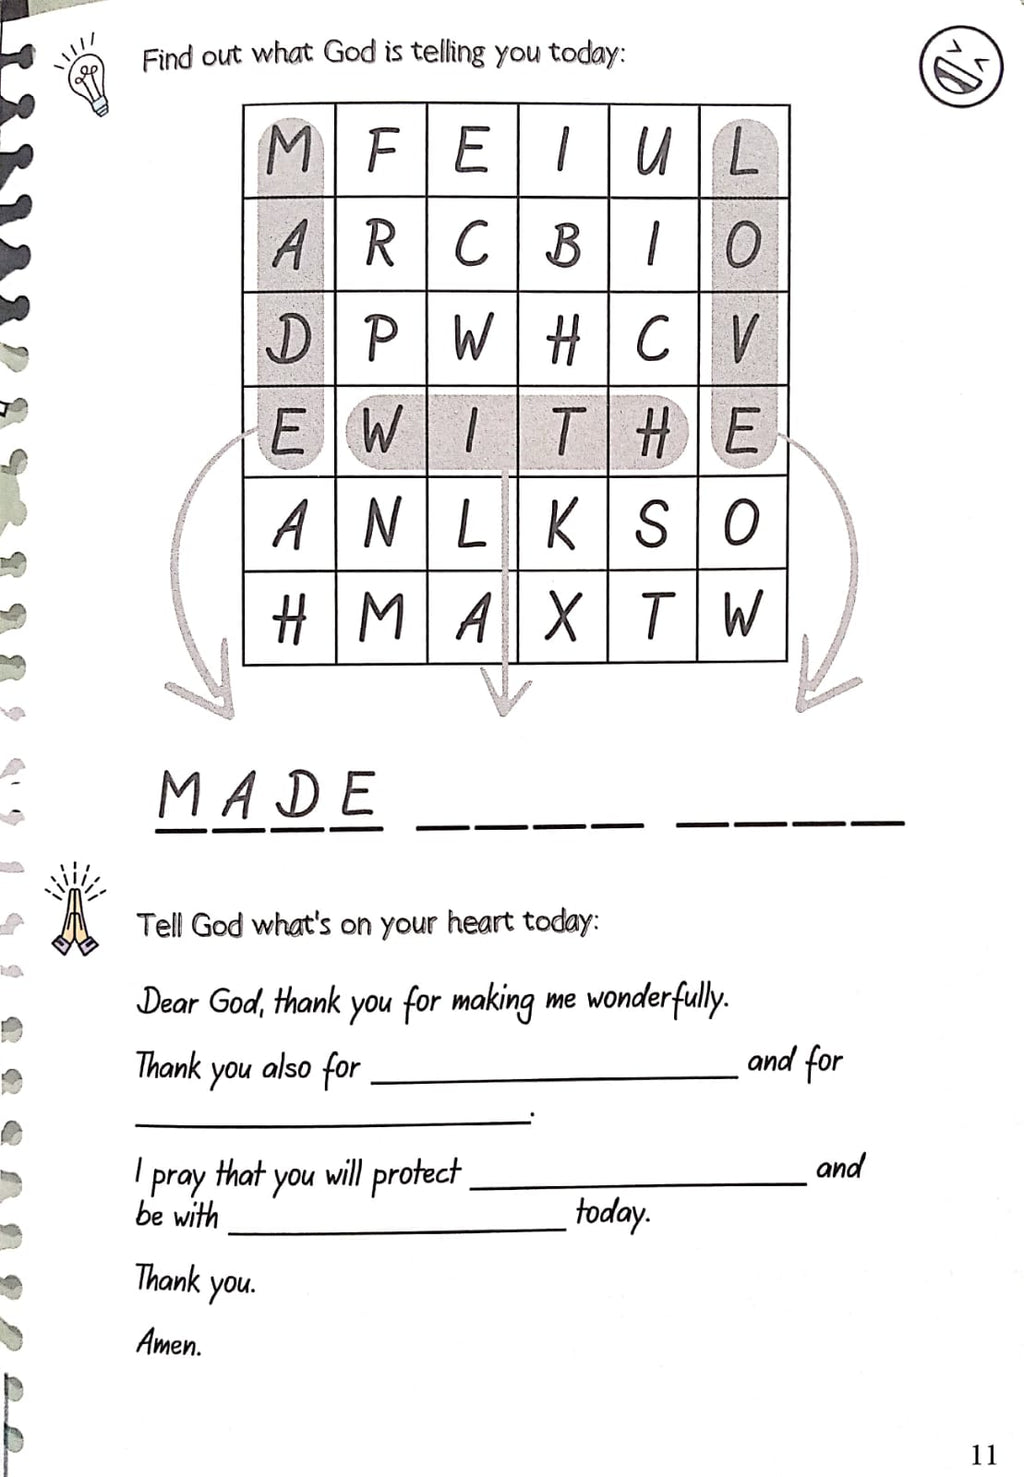 Find out what God is telling you today:
M F E I U L
A R C B I O
D P W H C V
E W I T H E
A N L K S O
H M A X T W
MADE ____ ____
Tell God what's on your heart today:
Dear God, thank you for making me wonderfully.
Thank you also for ____ and for
____.
I pray that you will protect ____ and
be with ____ today.
Thank you.
Amen.
11